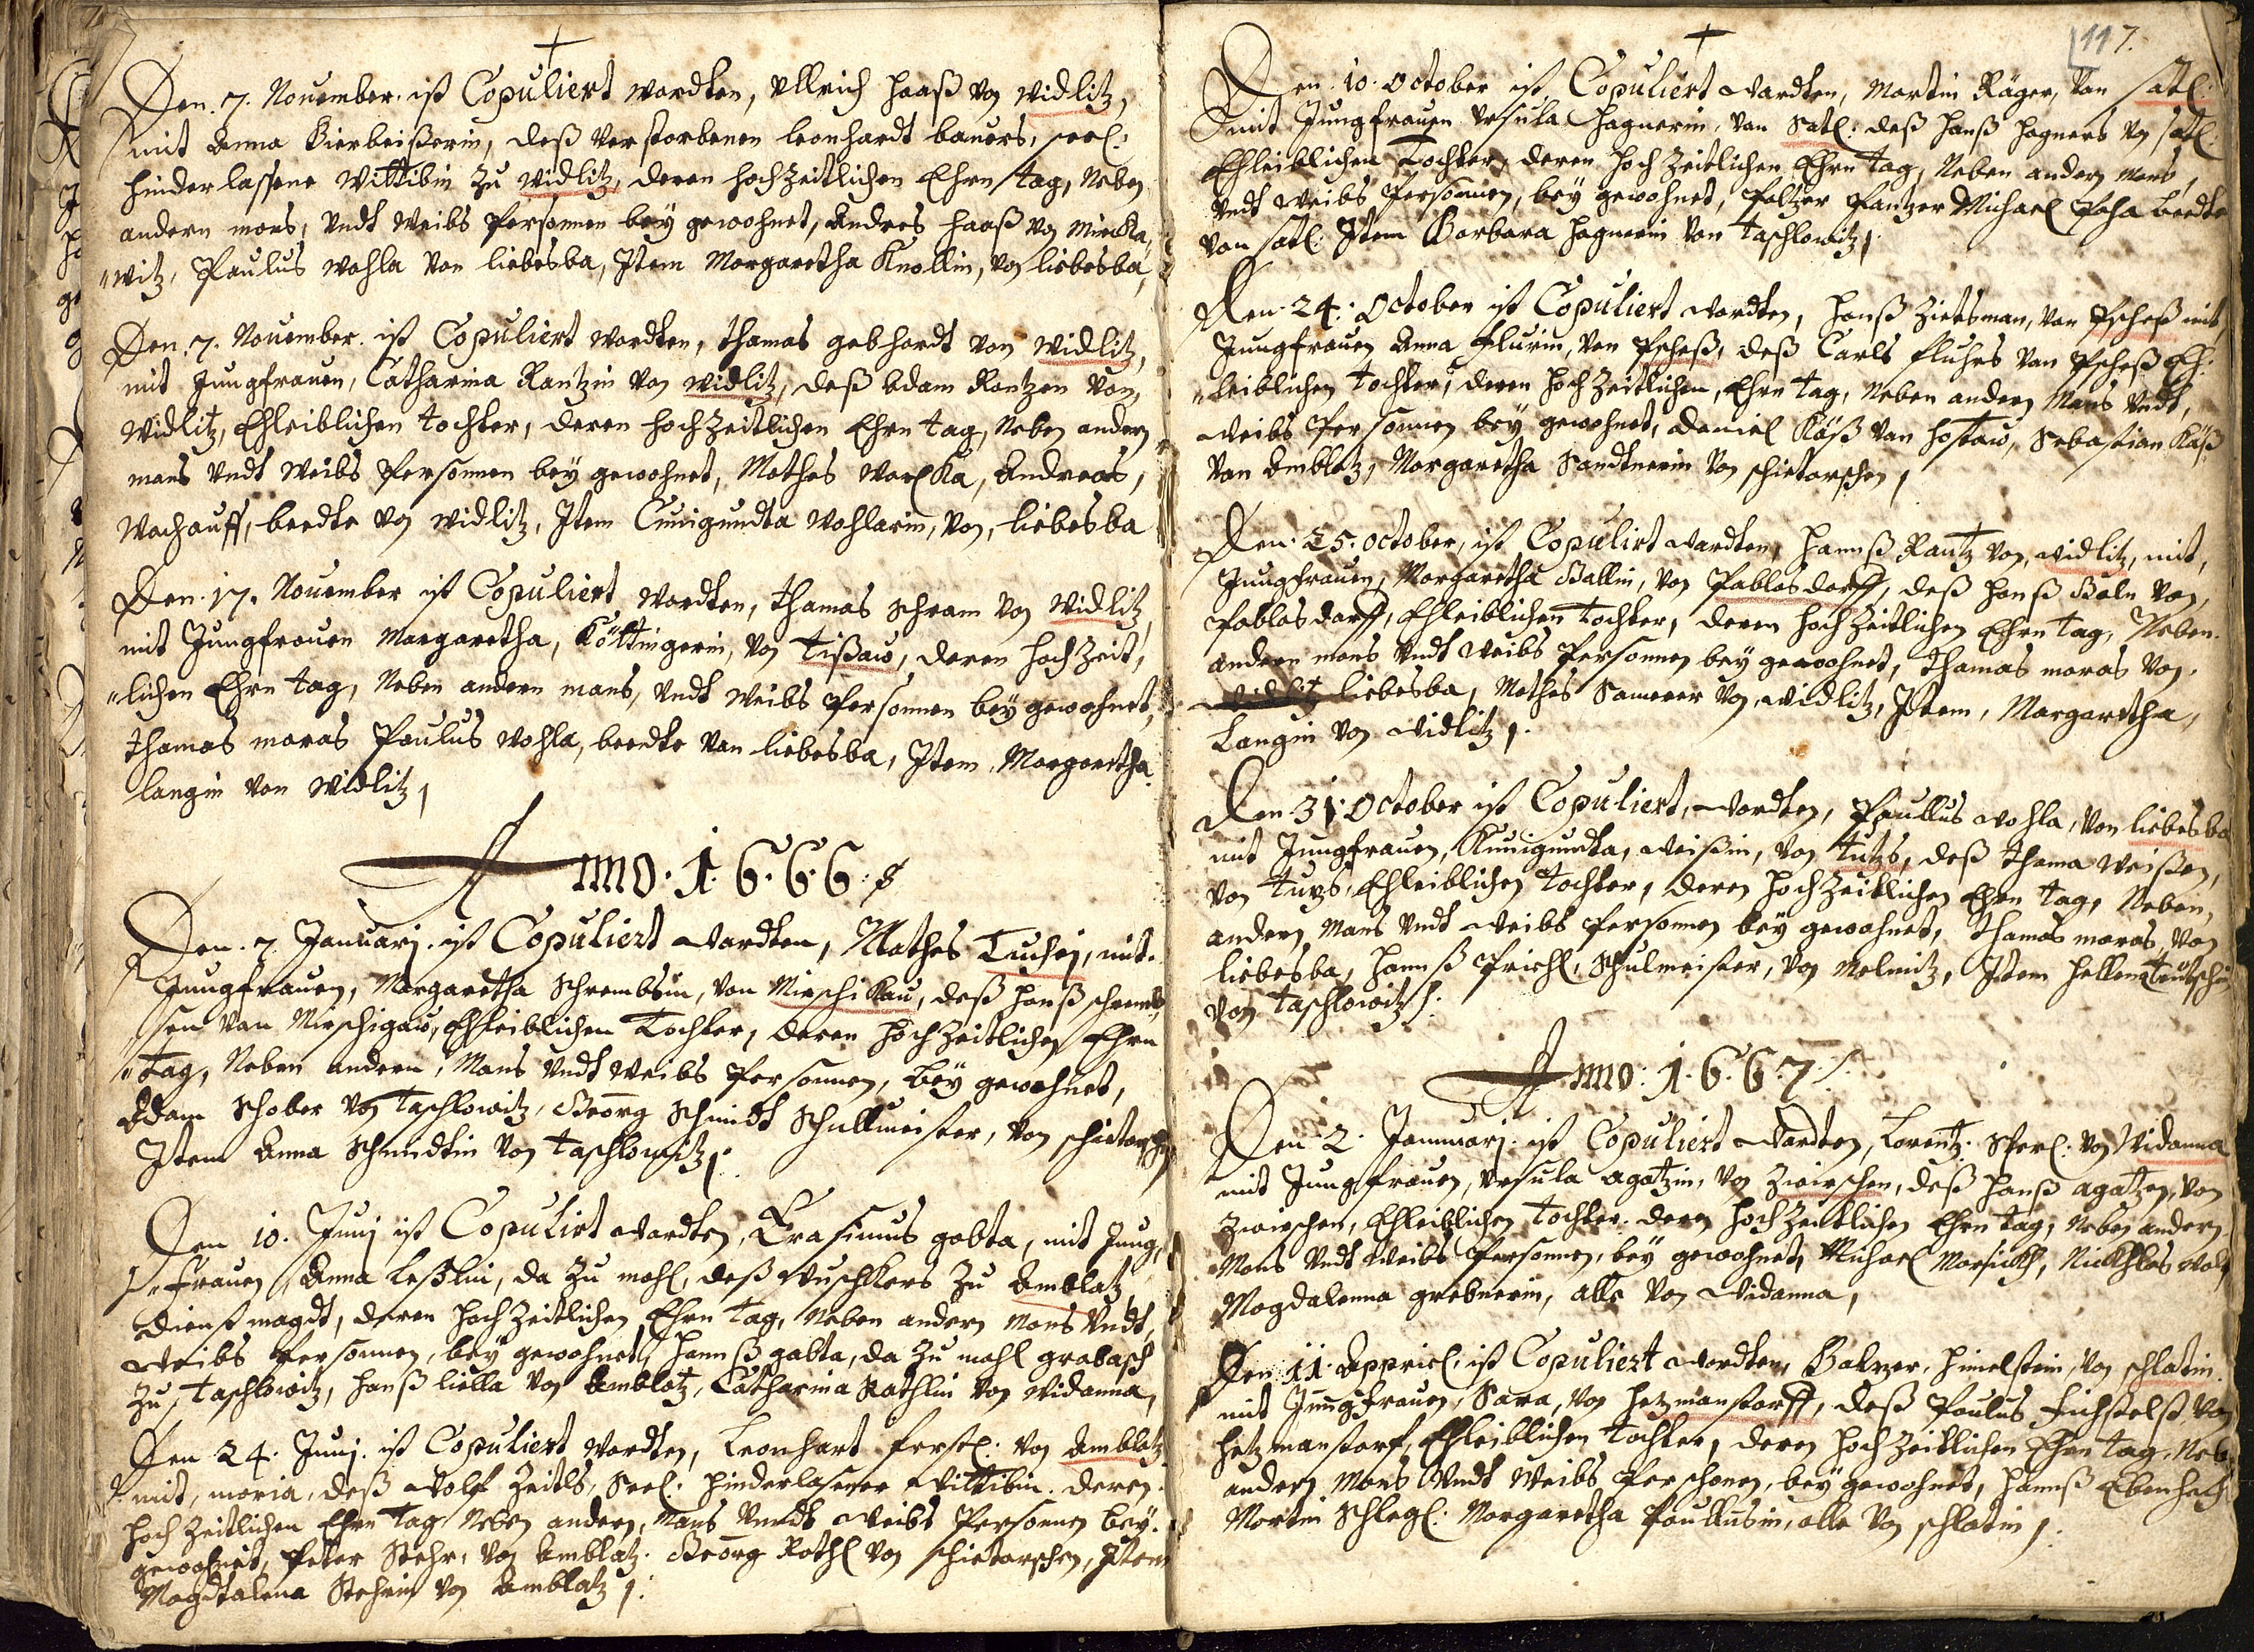 Den. 7. November. ist Copuliert wordten, Ullrich Haaß von Widlitz,
mit Anna Bierbeißerin, deß verstorbenen Leonhardt bauers, seel:
hinderlassene Wittibin zu Widlitz, deren hochzeitlichen Ehrn tag, Neben
andern mans, undt Weibs Personnen bey gewohnet, Andres Haaß von
witz, Paulus Wohla von liebesba, Item Margaretha Knollin, von liebesba,
Den. 7. November. ist Copuliert wordten, Thamas gebhardt von Widlitz,
mit Jungfrauen, Catharina Rantzin von Widlitz, deß Adam Rantzen von,
Widlitz, Ehleiblichen tochter, deren hochzeitlichen Ehrn tag, Neben andern
mans undt Weibs Personnen bey gewohnet, Mathes Andreas,
Wachauff, beedte von Widlitz, Item Cunigundta Wohlarin, von, liebesba
Den. 17. November ist Copuliert wordten, Thamas Schram von Widlitz,
mit Jungfrauen Margaretha, Köttingerin, von Tißaw, deren hochzeit,
"lichen Ehrn tag, Neben andern mans, undt Weibs Personnen bey gewohnet,
Thamas maras Paulus Wohla, beedte von liebesba, Item, Margaretha
langin von Widlitz
Anno. 1. 6. 6. 6.
Den. 7. Januarj. ist Copuliert wardten, Mathes Tuchej, mit.
Jungfrauen, Margaretha Schrembsin, von Mirschikau, deß Hanß schremb,
"sen von Mirschigaw, Ehleiblichen Tochter, deren hochzeitlichen Ehrn
"tag, Neben andern, Mans undt Weibs Personnen, bey gewohnet,
Adam Schober von Taschlowitz, Georg Schmidt Schullmeister, von schietarschen
Item Anna Schmidtin von Taschlowitz
Den 10. Junj ist Copulirt wardten, Erasimus gabta, mit Jung,
"frauen Anna Leßlin, da zu mahl, deß Wuschkers zu Amblatz,
dienst magdt, deren hochzeitlichen Ehrn tag, Neben andern mans undt,
Weibs Personnen, bey gewohnet, Hannß gabta, da zu mahl grabasch
zu, Taschlowitz, Hanß liella von Amblatz, Catharina Rathlin von Widanna,
Den 24. Junj. ist Copuliert wordten, Leonhart ferstl: von Amblatz
mit, maria, deß Wolf Zeitls, Seel. hinderlasener Wittibin. deren.
hochzeitlichen Ehrn tag Neben andern, Mans Vnndt Weibs Personnen bey.
gewohnet, Peter Stehr, von Amblatz. Georg Rothl von schietarschen, Item
Magdtalena Stehrin von Amblatz
117.
Den. 10. October ist Copuliert wardten, Martin Räger, van Satl.
mit Jungfrauen Ursula Hagnerin, van Satl: deß Hanß Hagners von satl:
Ehleiblichen Tochter, deren hochzeitlichen Ehrn tag, Neben andern Mans,
undt Weibs Personnen, bey gewohnet, Pantzer Michael beedte
van satl: Item Barbara Hagnerin van Taschlowitz
Den. 24. October ist Copuliert wardten, Hanß Zietsman, van Pscheß mit
Jungfrauen Anna Flurin, van Pscheß, deß Carls fluhrs van Pscheß Eh:
"leiblichen tochter, deren hochzeitlichen, Ehrn tag, Neben andern Mans undt,
weibs Personnen bey gewohnet, Daniel Käß van Hostaw, Sebastian Käß
van Amblatz, Margaretha Sandtnerin von schietarschen
Den. 25. October, ist Copulirt wardten, Hannß Rantz von, Widlitz, mit,
Jungfrauen, Margaretha Ballin, von Pablasdorff, deß Hanß Baln van,
Pablasdarff, Ehleiblichen tochter, deren hochzeitlichen Ehrn tag, Neben.
andern mans undt Weibs Personnen bey gewohnet, Thamas maras von.
Widlitz liebesba, Mathes Samerer von, Widlitz, Item, Margaretha,
Langin von Widlitz
Den. 31. October ist Copuliert, wordten, Paullus Wohla, von liebesba
mit Jungfrauen, Kunigundta, Weißin, von Tutzs, deß Thama Weißen,
von Tuzs, Ehleiblichen Tochter, deren hochzeitlichen Ehrn tag, Neben,
andern, Mans undt Weibs Personnen bey gewohnet, Thamas maras, von
liebesba, Hannß Prichl, Schulmeister, von Melnitz, Item Hellena
von Taschlowitz
Anno: 1. 6. 6. 7.
Den 2. Jannuarj. ist Copuliert wardten, Lorentz: Sperl: von Widanna
mit Jungfrauen, Ursula agatzin, von Zwirschen, deß Hanß agatzen, von
Zwirschen, Ehleiblichen Tochter. deren hochzeitlichen Ehrn tag, Neben andern
Mans undt Weibs Personnen, bey gewohnet, Michael Niekhlas
Magdalenna grebnerin, alle von Widanna,
Den 11. Appriel, ist Copuliert wordten, Balzer, Himelstein, von schlatin.
mit Jungfrauen, Sara, von Hetzmanstorff, deß Paulus von
Hetzmanstorf, Ehleiblichen Tochter, deren hochzeitlichen Ehrn tag, Neb,
andern Mans Vndt Weibs Perschonen, bey gewohnet, Hannß
Martin Schlegl: Margaretha Paullusin, alle von schlatin